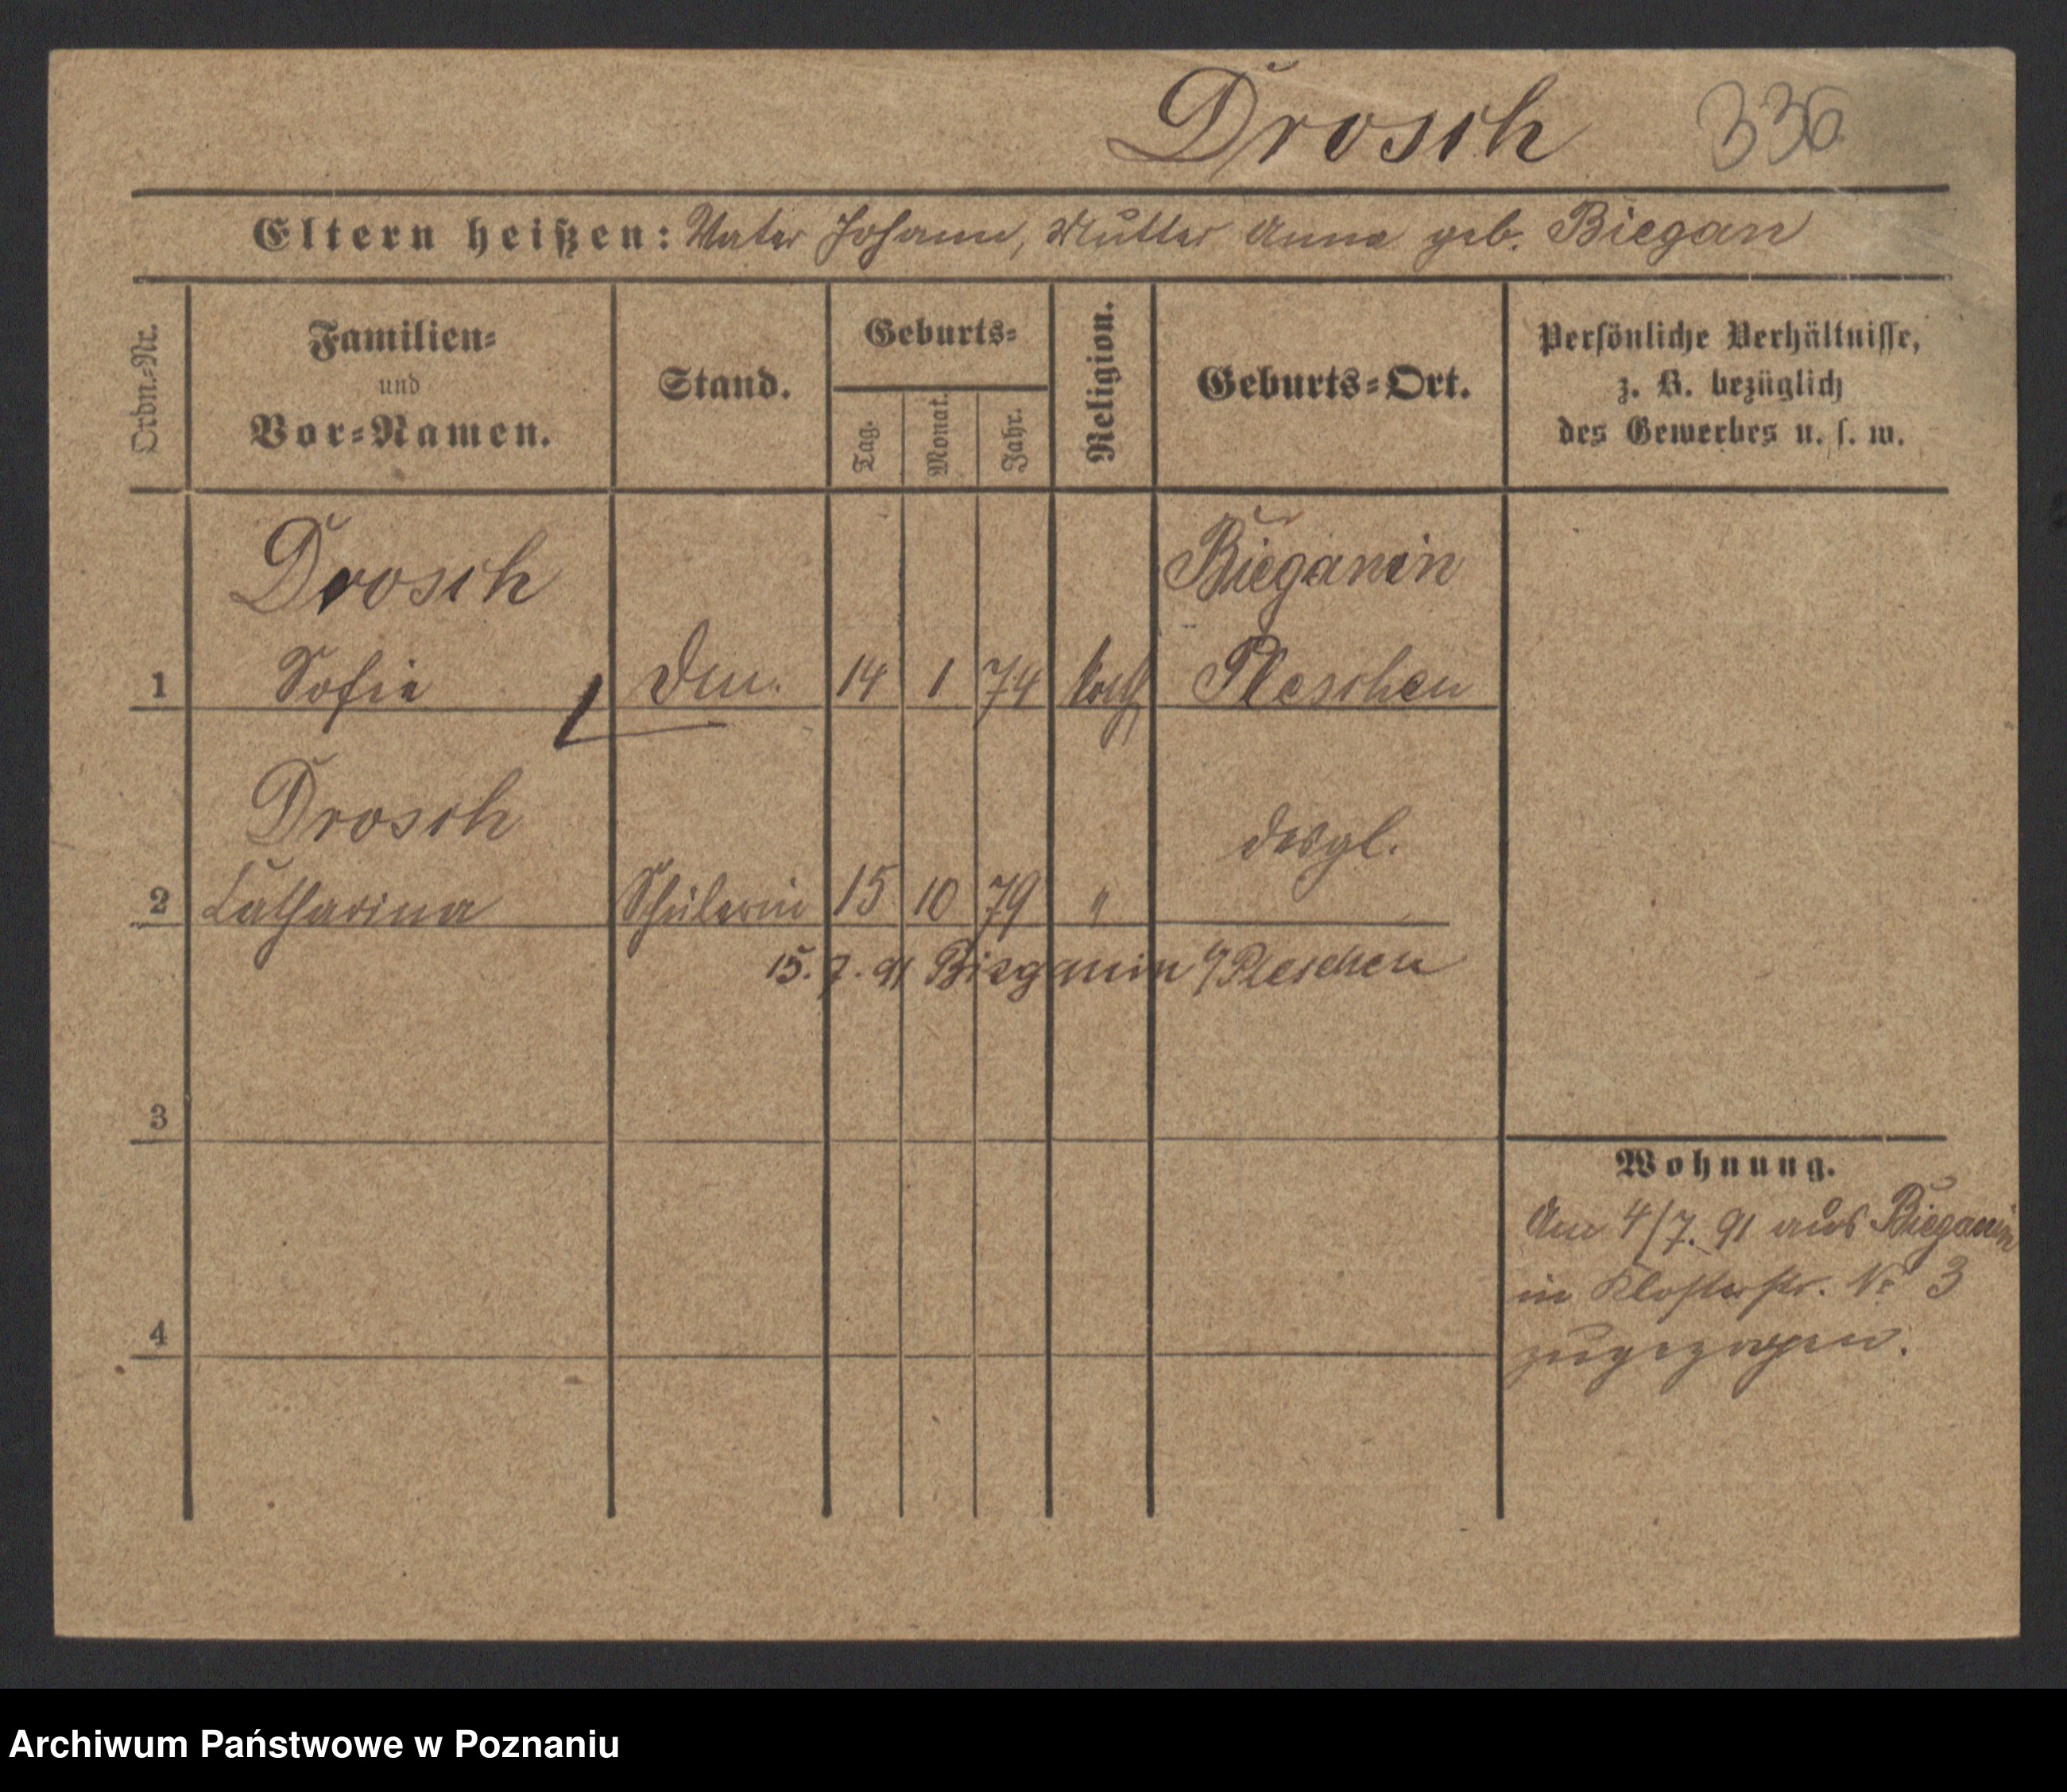 Drosch 336
Eltern heißen: Vater Johann, Mutter Anna geb. Biegan
Ordn.-Nr.
Familien-
und
Vor-Namen.
Stand.
Geburts-
Tag.
Monat.
Jahr.
Religion.
Geburts-Ort.
Persönliche Verhältnisse,
z. B. bezüglich
des Gewerbes u. s. w.
Drosch Bieganin
1 Sofie 14 1 74 kath Pleschen
Drosch desgl.
2 Catharina Schülerin 15 10 79 "
15. 7. 91 Bieganin Pleschen
3
4
Wohnung.
Am 4/7. 91 aus Bieganin
in Klosterstr. Nr 3
zugezogen.
Archiwum Państwowe w Poznaniu